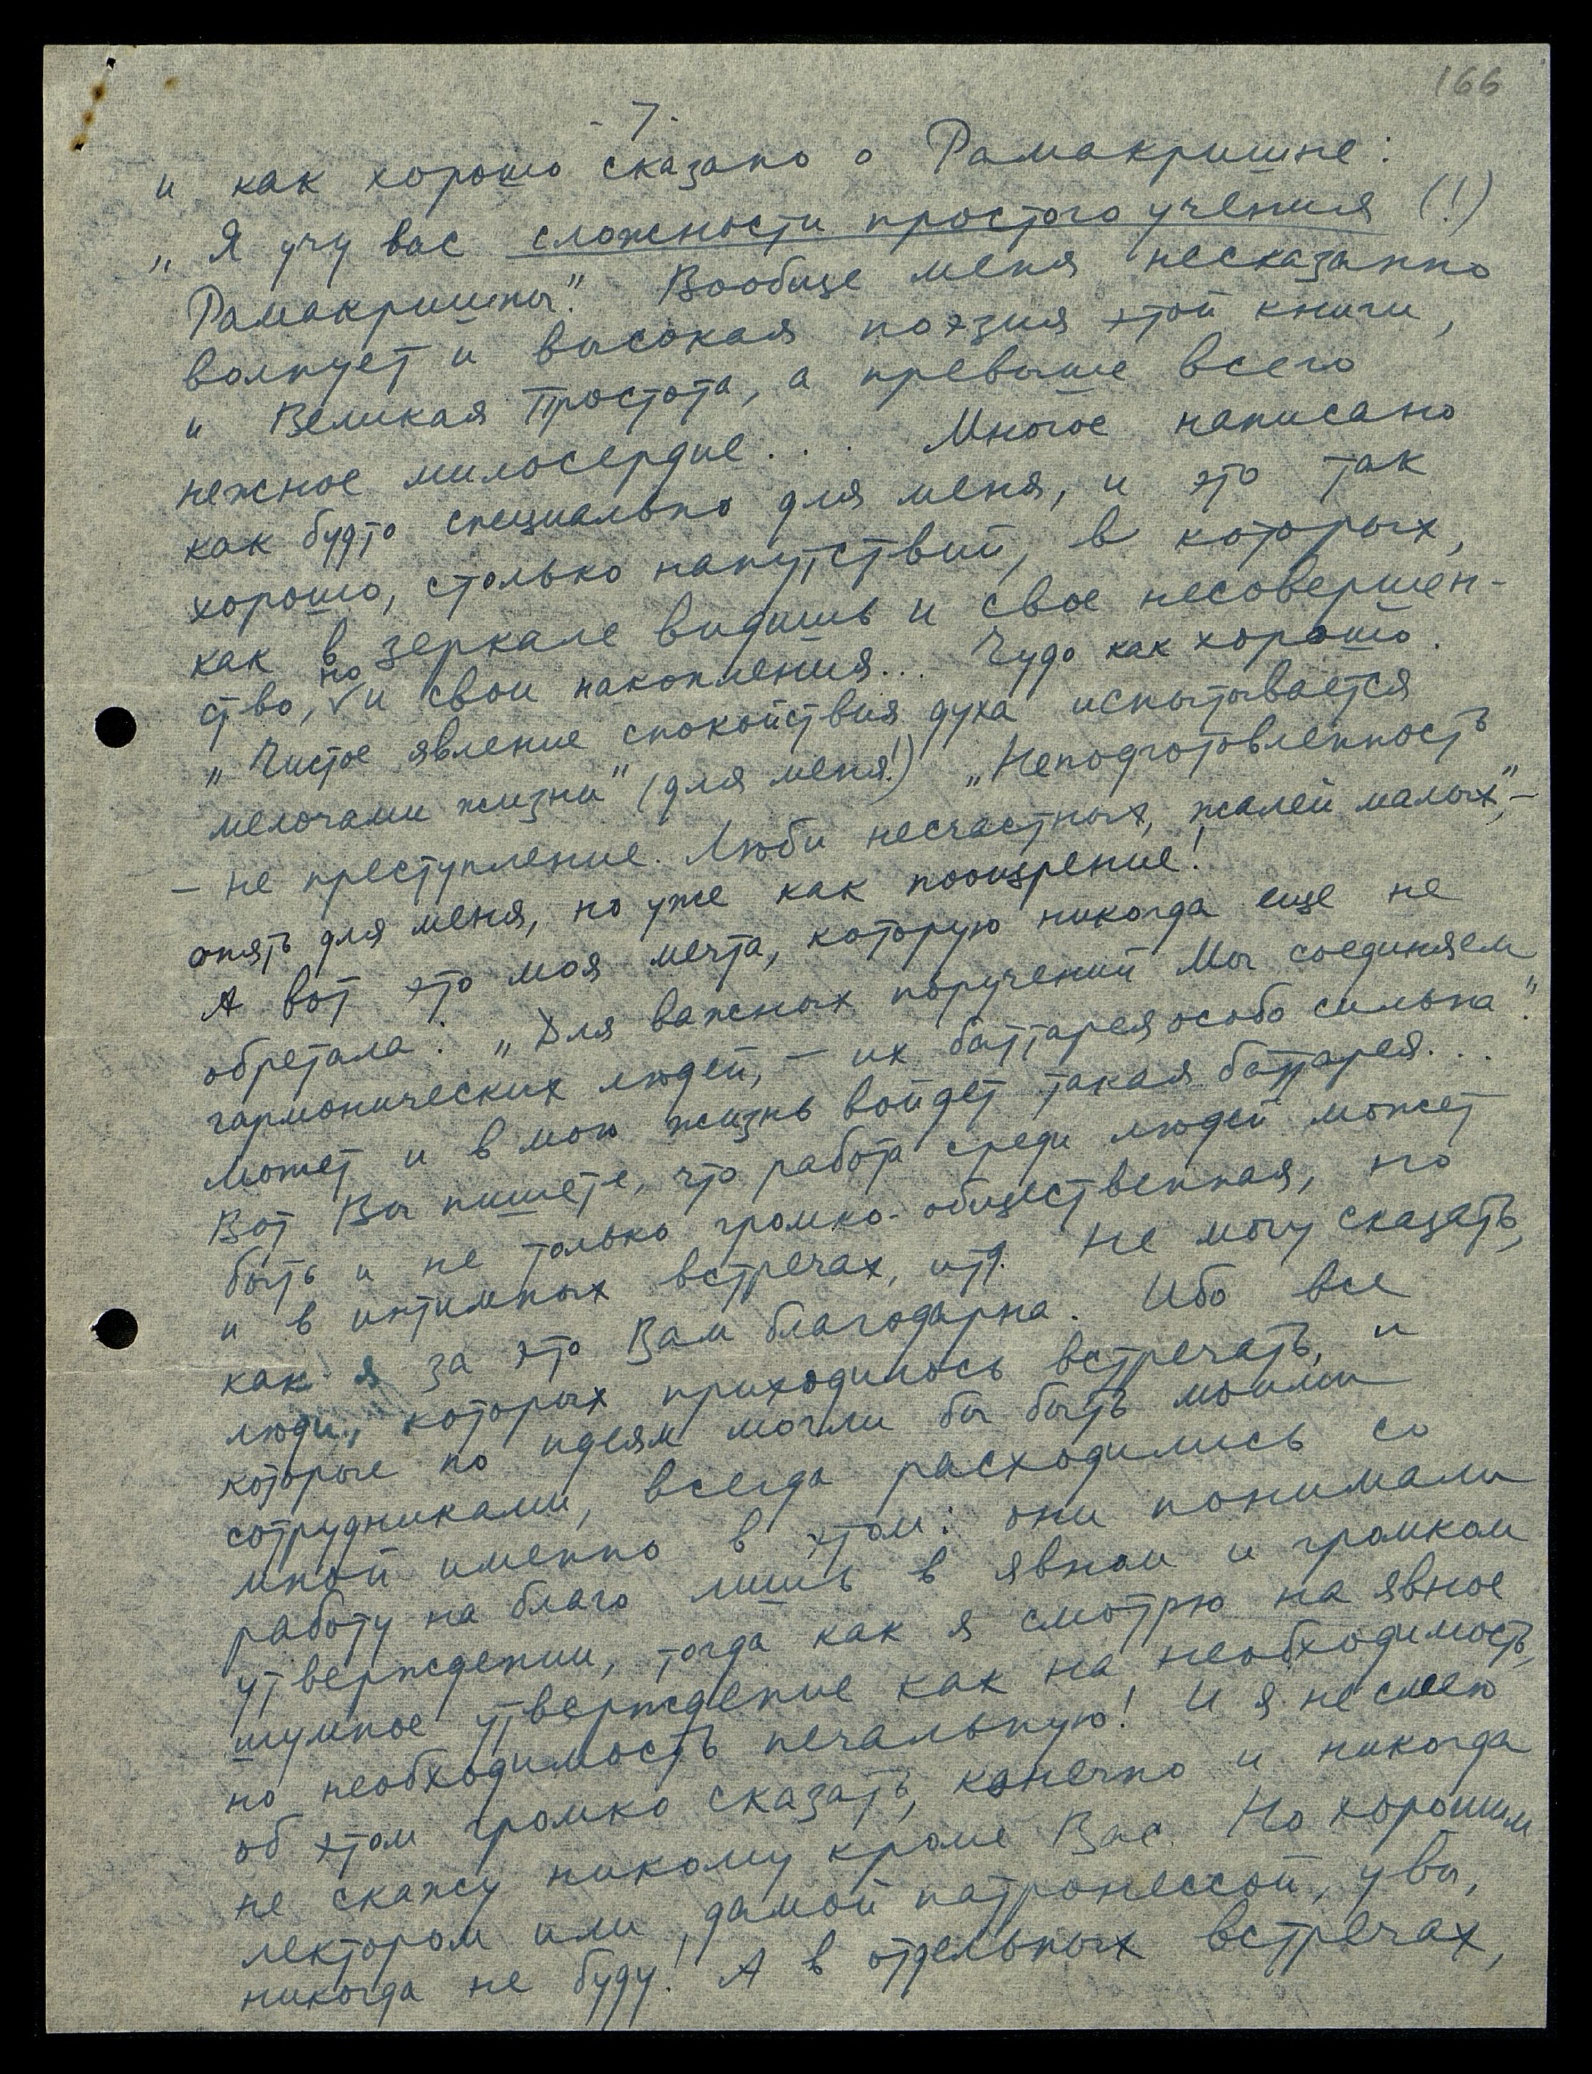 166
- 7 -
и как хорошо сказано о Рамакришне:
„Я учу вас сложности простого учения (!)
Рамакришны." Вообще меня несказанно
волнует и высокая поэзия этой книги,
и Великая Простота, а превыше всего
нежное милосердие... Многое написано
как будто специально для меня, и это так
хорошо, столько напутствий, в которых,
как в зеркале видишь и свое несовершен-
ство, но и свои накопления... Чудо как хорошо.
„Чистое явление спокойствия духа испытывается
мелочами жизни" (для меня!) „Неподготовленность
– не преступление. Люби несчастных, жалей малых", –
опять для меня, но уже как поощрение!
А вот это моя мечта, которую никогда еще не
обретала: „Для важных поручений Мы соединяем
гармонических людей, – их баттарея особо сильна".
Может и в мою жизнь войдет такая баттарея...
Вот Вы пишете, что работа среди людей может
быть и не только громко-общественная, но
и в интимных встречах, итд. Не могу сказать,
как я за это Вам благодарна. Ибо все
люди, которых приходилось встречать, и
которые по идеям могли бы быть моими
сотрудниками, всегда расходились со
мной именно в этом: они понимали
работу на благо лишь в явном и громком
утверждении, тогда как я смотрю на явное
шумное утверждение как на необходимость,
но необходимость печальную! И я не смею
об этом громко сказать, конечно и никогда
не скажу никому кроме Вас. Но хорошим
лектором или, дамой патронессой, увы,
никогда не буду! А в отдельных встречах,